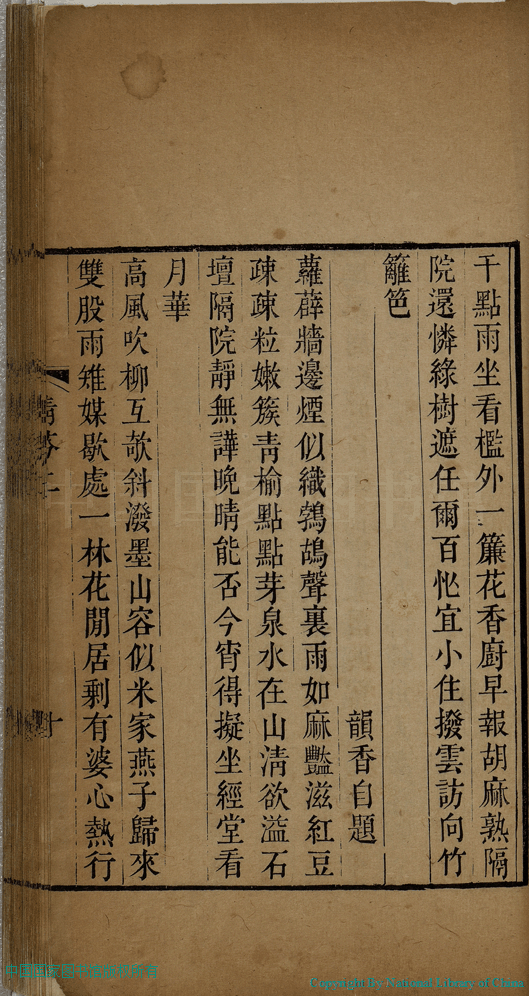 千點雨坐看檻外一簾花香廚早報胡麻熟隔
院還憐綠樹遮任爾百忙宜小住撥雲訪向竹
籬笆
韻香自題
蘿薜牆邊煙似織鵓鴣聲裏雨如麻豔滋紅豆
疎疎粒嫩簇靑榆點點芽泉水在山淸欲溢石
壇隔院靜無譁晚晴能否今宵得擬坐經堂看
月華
高風吹柳互欹斜潑墨山容似米家燕子歸來
雙股雨雉媒歇處一林花閒居剩有婆心熱行
十
Copyright By National Library of China